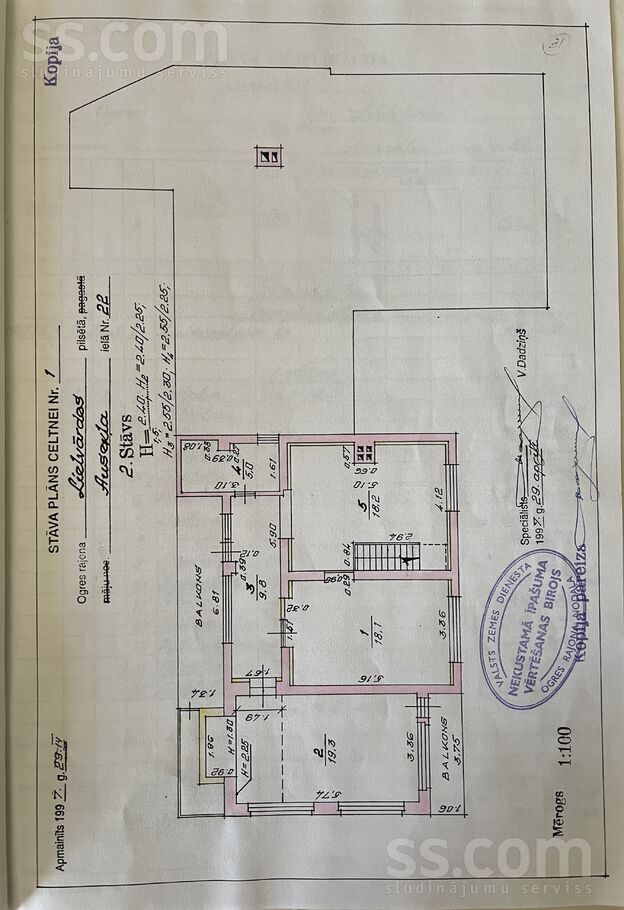 ss.com
sludinājumu serviss
Kopija
31
STĀVA PLĀNS CELTNEI Nr. 1
Ogres rajona Lielvārdes pilsētā, pagastā
māju nos. Ausekļa ielā Nr. 22
2. Stāvs
H= 2.40 H2=2.40/2.25;
1.5
H3=2.55/2.30; H4=2.55/2.25;
Apmainīts 1997. g. 29.IV
BALKONS
6.81
1.34
1.86
H=1.30
0.92
H=2.25
1.49
1.67
2
19,3
5.74
3.36
BALKONS
3.75
1.06
3
9.8
0.12
0.39
5.90
0.32
1.37
1
18,1
5.16
3.36
0.29
0.98
0.84
2.94
5
18,2
5.10
4.12
0.66
0.57
4
5,0
3.10
1.61
1.08
0.38
0.39
0.27
Speciālists V.Dadziņš
1997. g. 29. aprīlī
VALSTS ZEMES DIENEST
NEKUSTAMĀ ĪPAŠUMA
VĒRTĒŠANAS BIROJS
OGRES RAJONA NODAĻA
Kopija pareiza
Mērogs 1:100
ss.com
sludinājumu serviss